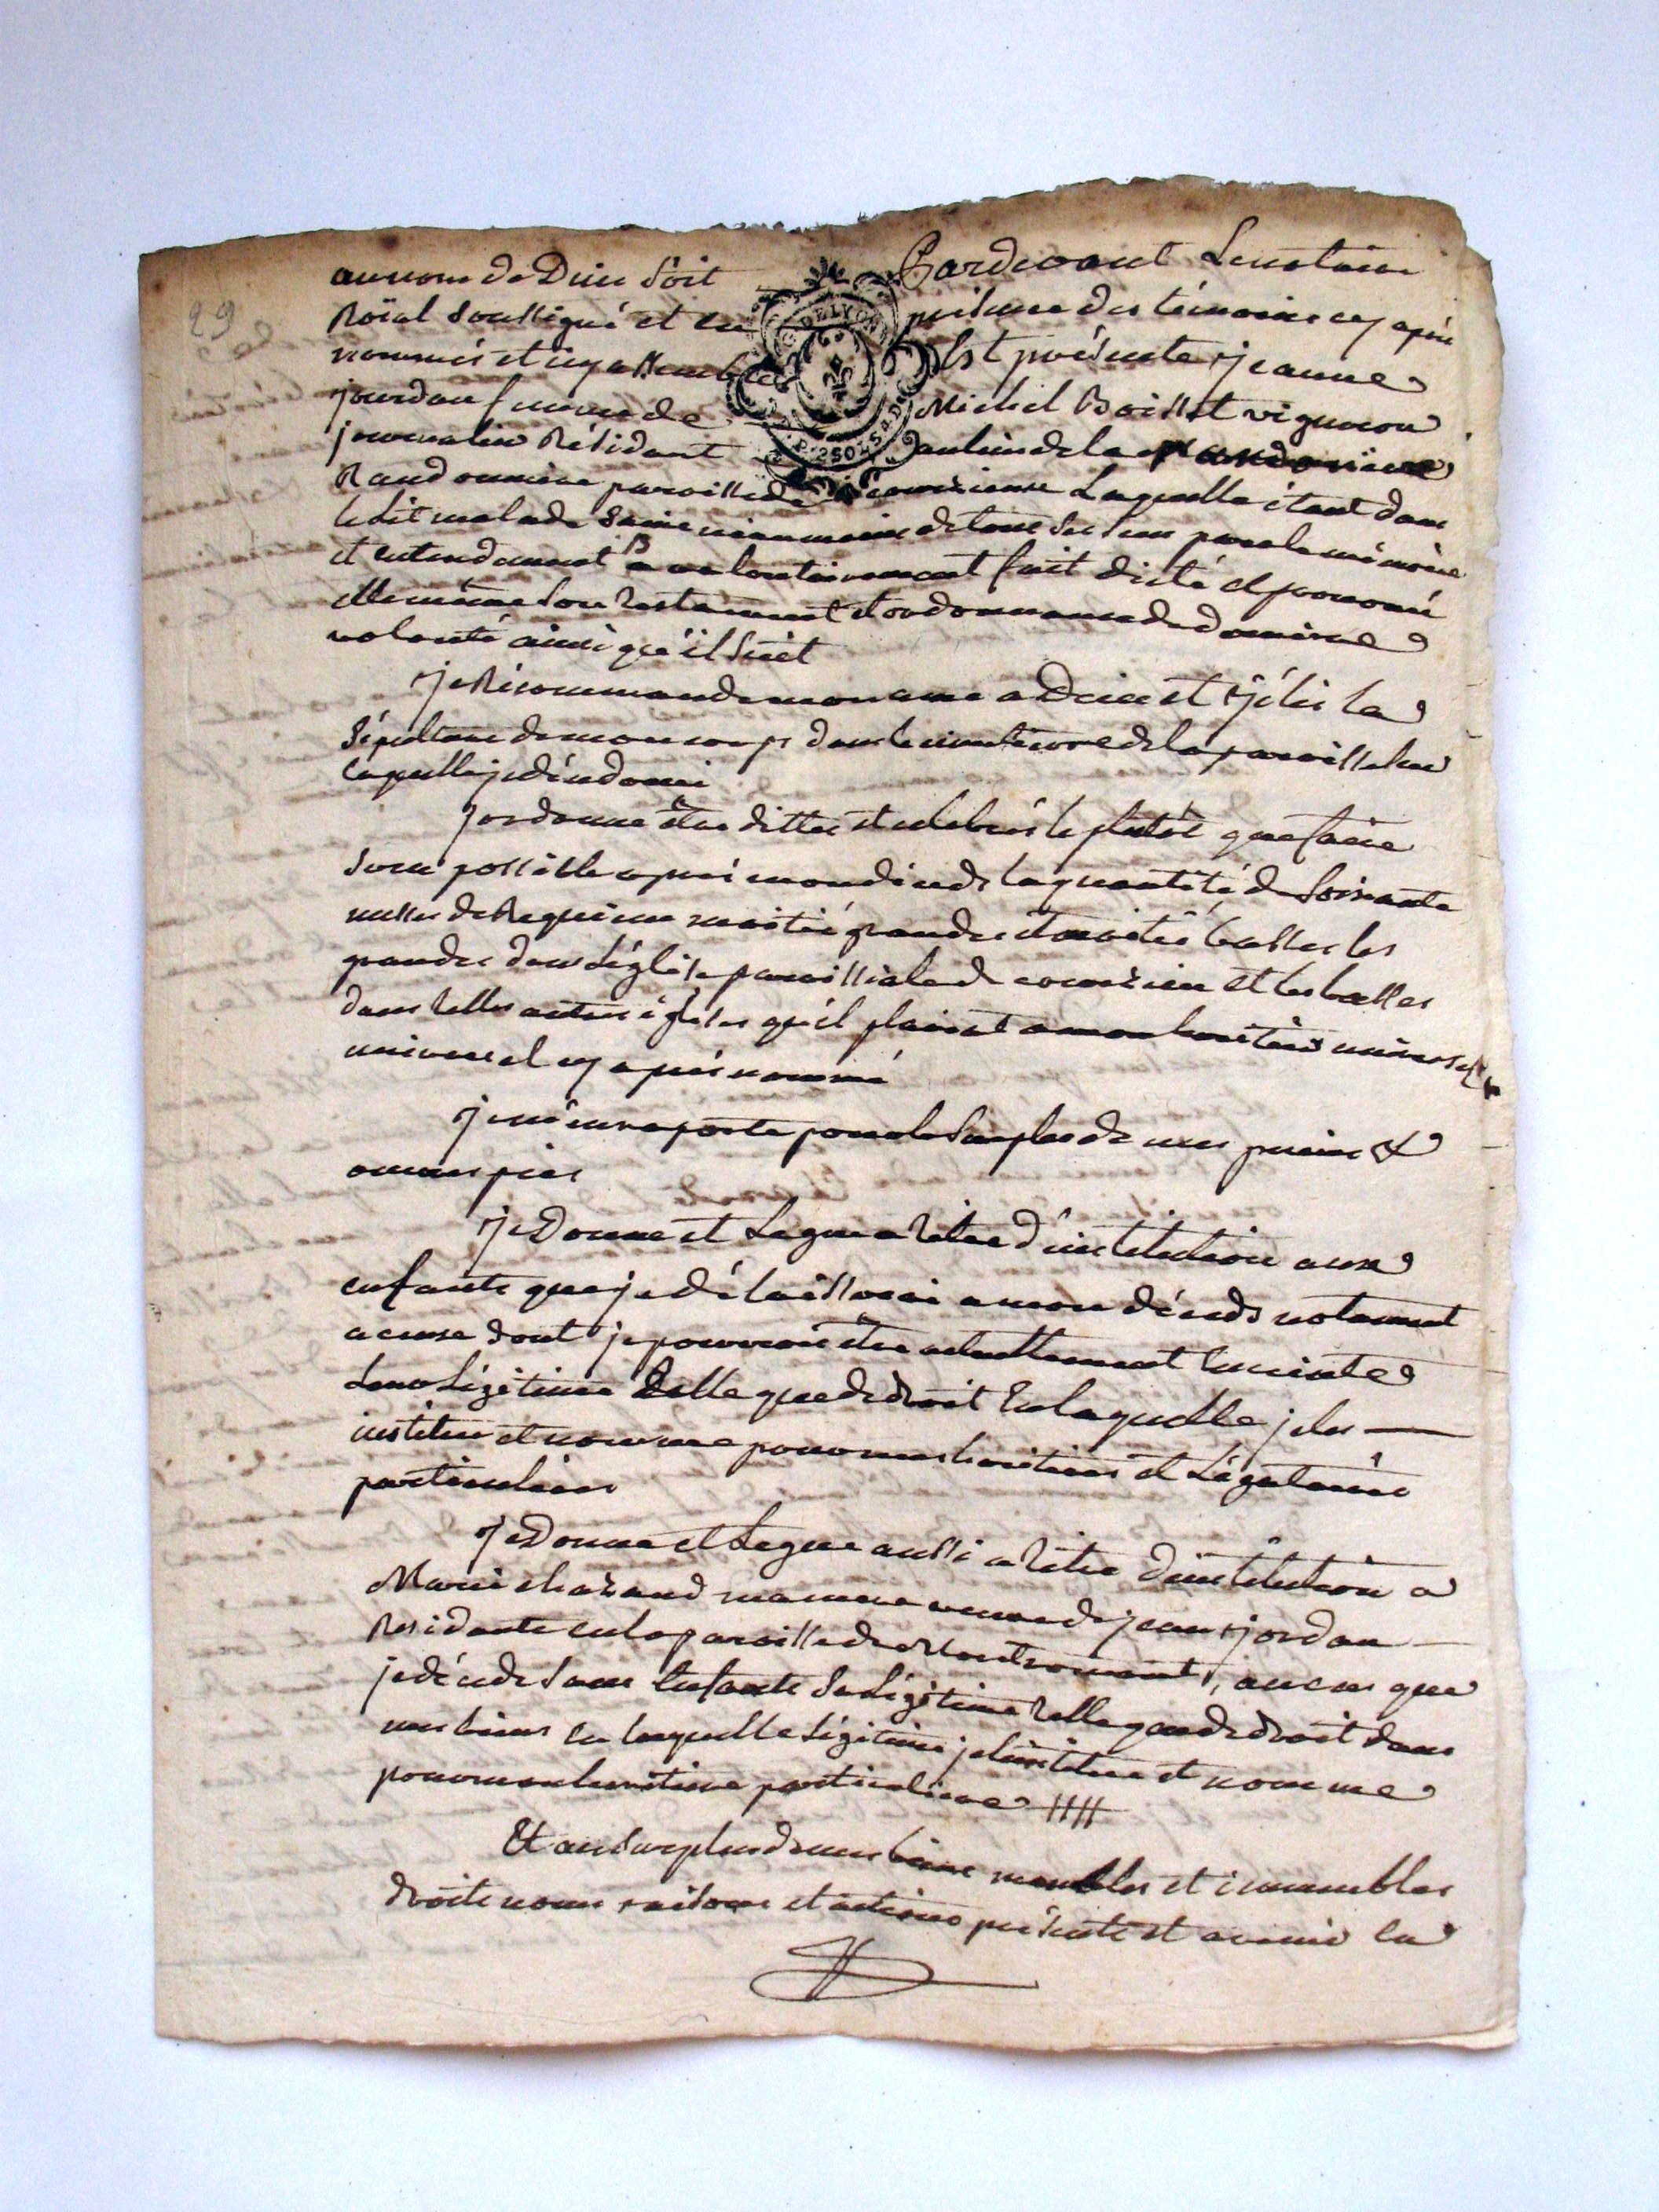 29
au nom de Dieu Soit Pardevant Le notaire
Roïal Soussigné et en présence des témoins cy après
nommés et icy assemblés Est présente jeanne
jourdan femme de Michel Boisset vigneron
journalier Résidant au lieu de la
Randonniere paroisse de courzieux Laquelle étant dans
le Lit malade Saine néanmoins de tous Ses Sens parole mémoire
et entendement a volontairement fait dicté et prononcé
Elle même Son testament et ordonnance de derniere
volonté ainsi qu'il Suit
je Récommande mon ame a Dieu et j'élis la
Sépulture de mon corps dans le cimetierre de la paroisse sur
laquelle je décéderai
j'ordonne être dittes et celebrés le plutôt que faire
Sera possible après mon décéds la quantité de Soixante
messes de Requiem moitié grandes et moitié basses les
grandes dans L'église paroissiale de courzieu et les basses
dans telles autres églises qu'il plaira a mon heritier universel
universel cy après nommé
je m'en raporte pour le Surplus de mes prieres &
œuvres pies
je Donne et Legue a titre d'institution aux
enfants que je délaisserai a mon décéds notament
a ceux dont je pourrois être actuellement Enceinte
Leur Légitime telle que de droit En laquelle je les
institue et nomme pour mes heritiers et Légataires
particuliers
je Donne et Legue aussi a titre d'institution a
Marie chazaud ma mere veuve de jean jordan
Residante en la paroisse de , au cas que
je décéde Sans Enfants Sa Légitime telle que de droit dans
mes biens en laquelle Légitime je l'institue et nomme
pour mon heritiere particuliere
Et au Surplus de mes biens meubles et immeubles
droits noms raisons et actions présents et avenir En